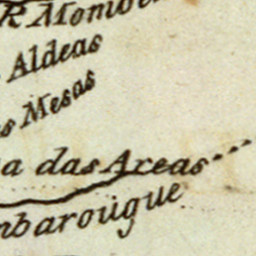 R Momb
Aldeas
s Mesas
a das Areas
nbarougue